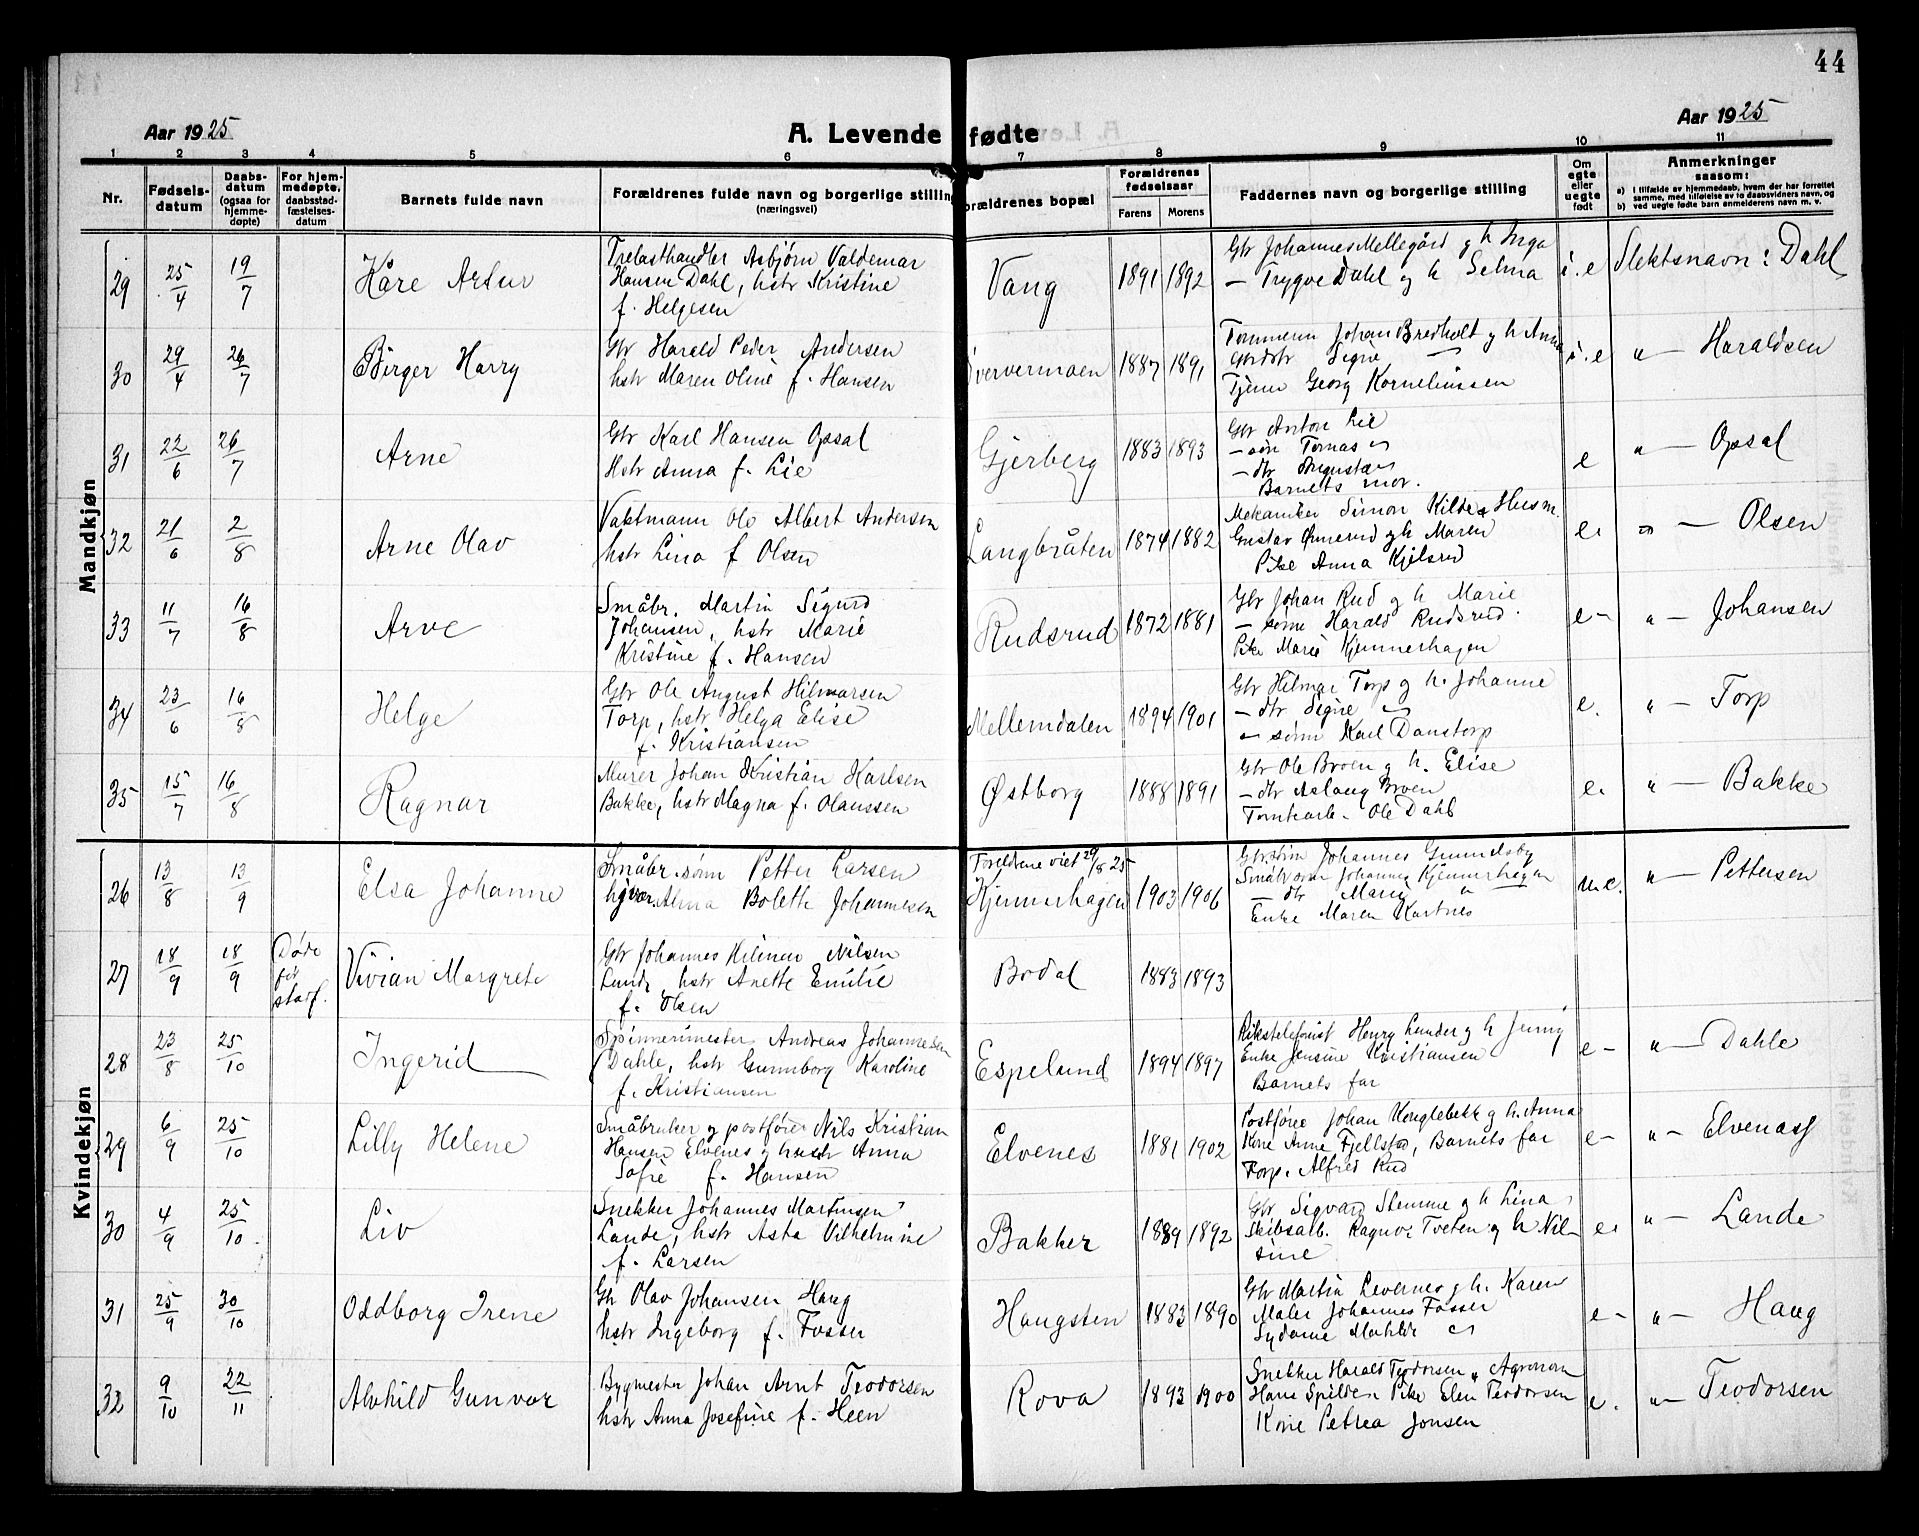 44
Aar 1925
A. Levende fødte
Aar 1925
1 2 3 4 5 6 7 8 9 10 11
Nr.
Fødsels-
datum
Daabs-
datum
(ogsaa for
hjemme-
døpte)
For hjem-
medøpte,
daabsstad-
fæstelses-
datum
Barnets fulde navn
Forældrenes fulde navn og borgerlige stilling
(næringsvei)
orældrenes bopæl
Forældrenes
fødselsaar
Farens Morens
Faddernes navn og borgerlige stilling
Om
egte
eller
uegte
født
Anmerkninger
saasom:
a) i tilfælde av hjemmedaab, hvem der har forrettet
samme, med tilføielse av to daabsvidners navn, og
b) ved uegte fødte barn anmelderens navn m. v.
Mandkjøn
29 25/4 19/7 Kåre Artur
Trelasthandler Asbjørn Valdemar
Hansen Dahl, hstr Kristine
f. Helgesen
Vang 1891 1892
Gbr Johannes Mellegård og h Inga
— Trygve Dahl og h Selma
i. e Slektsnavn: Dahl
30 29/4 26/7 Birger Harry
Gbr Harald Peder Andersen
hstr Maren Oline f. Hansen
Øververmoen 1887 1891
Tømmerm Johan Bredholt og h Anna
Gbrdtr Signe —
Tjener Georg Korneliussen
i. e " — Haraldsen
31 22/6 26/7 Arne
Gbr Karl Hansen Opsal
Hstr Anna f. Lie
Gjerberg 1883 1893
Gbr Anton Lie
— søn Tomas "
— dtr Augusta "
Barnets mor.
e " — Opsal
32 21/6 2/8 Arne Olav
Vaktmann Ole Albert Andersen
hstr Lina f Olsen
Langbråten 1874 1882
Mekaniker Simon Kilde, Husm.
Gustav Ømerud og h Maren
Pike Anna Kjelsrud
e. " — Olsen
33 11/7 16/8 Arve
Småbr. Martin Sigurd
Johansen, hstr Marie
Kristine f. Hansen
Rudsrud 1872 1881
Gbr Johan Rud og h Marie
— sønn Harald Rudsrud
Pike Marie Kjennerhagen
e — " — Johansen
34 23/6 16/8 Helge
Gbr Ole August Hilmarsen
Torp, hstr Helga Elise
f. Kristiansen
Mellemdalen 1894 1901
Gbr Hilmar Torp og h. Johanne
— dtr Signe "
— sønn Karl Danstorp
e. " — Torp
35 15/7 16/8 Ragnar
Murer Johan Kristian Karlsen
Bakke, hstr Magna f. Olaussen
Østborg 1888 1891
Gbr Ole Broen og h. Elise
— dtr Aslaug Broen
Tomtearb. Ole Dahl
e. " — Bakke
Kvindekjøn
26 13/8 13/9 Elsa Johanne
Småbr.sønn Petter Larsen
Alma Bolette Johannesen
Foreldrene viet 29/8 25
Kjennerhagen 1903 1906
Gbrsønn Johannes Grundsby
Småbr sønn Johannes Kjennerhagen
— dtr Marie "
Enke Maren Kartnes
u.e. " — Pettersen
27 18/9 18/9 Døde
før
stadf.
Vivian Margrete
Gbr Johannes Nilsen
Lunde, hstr Anette Emilie
f. Olsen
Bodal 1883 1893
28 23/8 25/10 Ingerid
Spinnerimester Andreas Johannesen
Dahle, hstr Gunnborg Karoline
f. Kristiansen
Espelund 1894 1897
Rikstelefonist Henry Lunder og h Jenny
Enke Jensine Kristiansen
Barnets far
e — " — Dahle
29 6/9 25/10 Lilly Helene
Småbruker og postfører Nils Kristian
Hansen Elvenes og hustr Anna
Sofie f. Hansen
Elvenes 1881 1902
Postfører Johan Konglebekk og h. Anna
Kone Anne Fjellstad, Barnets far
Torp. Alfred Rud
e — " — Elvenes
30 4/9 25/10 Liv
Snekker Johannes Martinsen
Lande, hstr Asta Vilhelmine
f. Larsen
Bakker 1889 1892
Gbr Sigvard Stemme og h Lina,
Skibsarb. Ragnv. Tveten og h Nil-
sine
e. " — Lande
31 25/9 30/10 Oddborg Irene
Gbr Olav Johansen Haug
hstr Ingeborg f. Fosser
Haugsten 1883 1890
Gbr Martin Levernes og h. Karen
Maler Johannes Fosser
Sydame Mathilde "
e — " — Haug
32 9/10 22/11 Alvhild Gunvor
Bygmester Johan Arnt Teodorsen
hstr Anna Josefine f. Heen
Rova 1893 1900
Snekker Harald Teodorsen, Agronom
Hans Spilde, Pike Elen Teodorsen
Kone Petrea Jonsen
e. " — Teodorsen